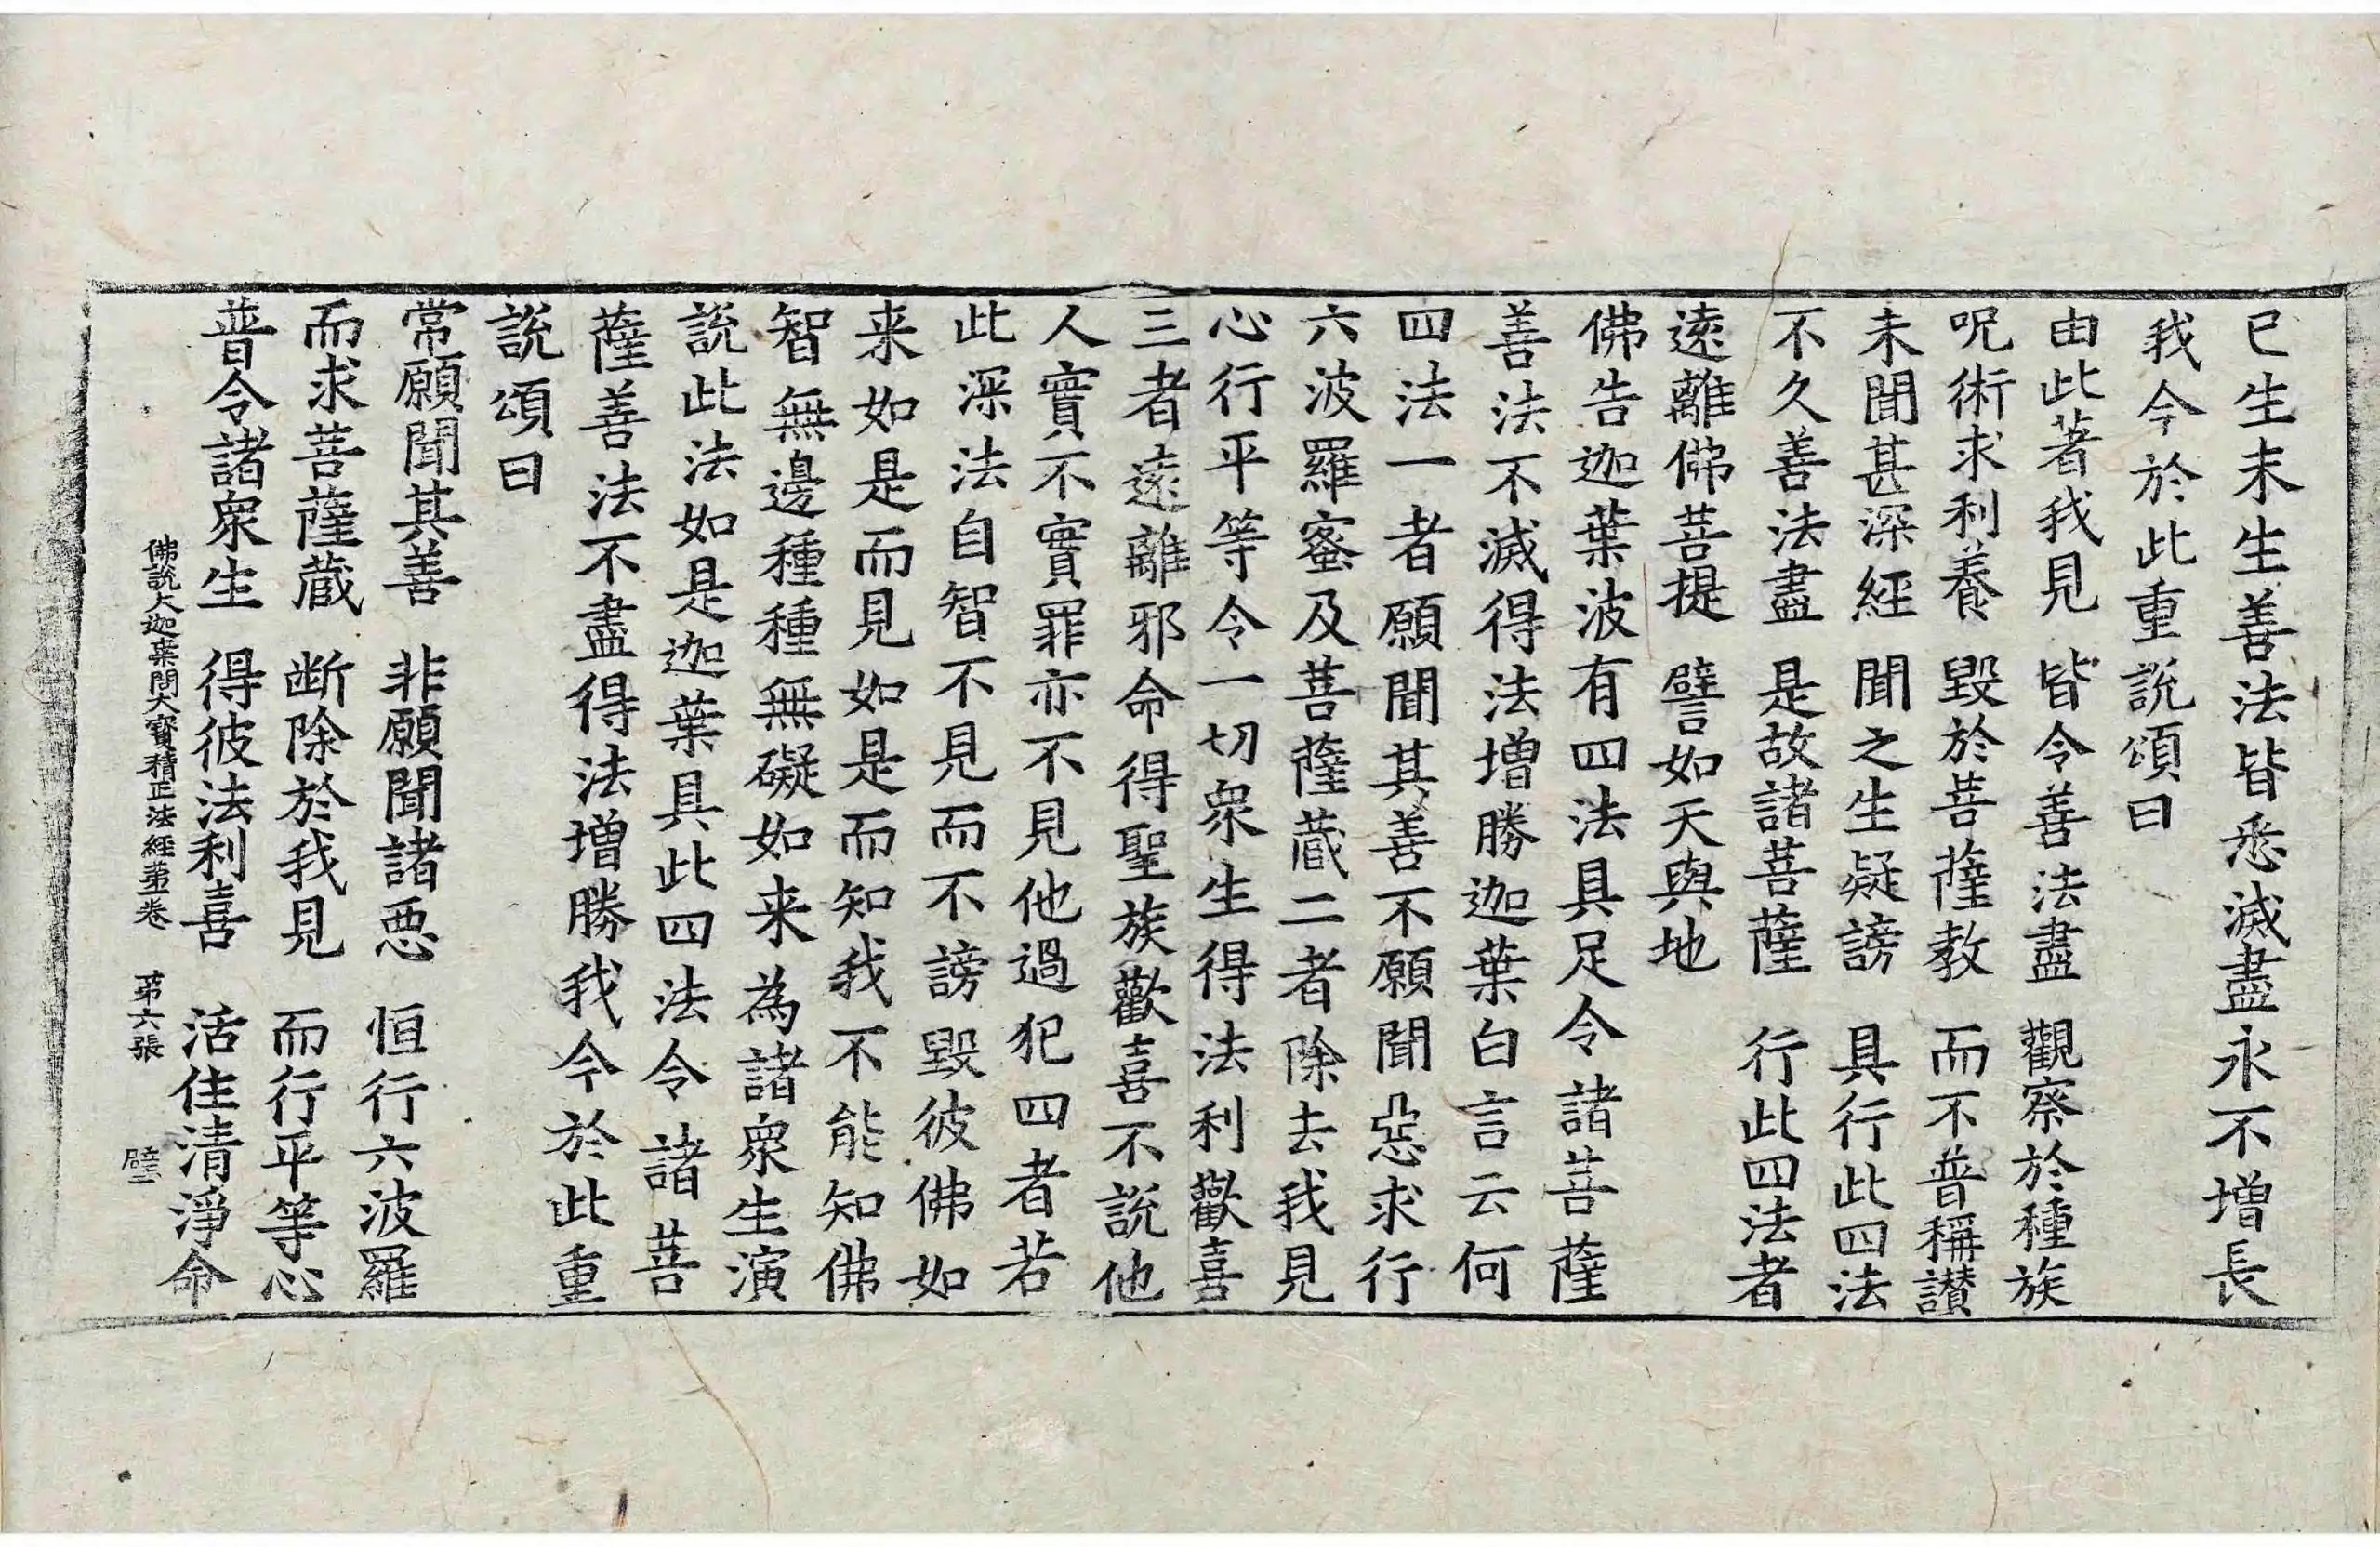 已生未生善法皆悉滅盡永不增長
我今於此重說頌曰
由此著我見　皆令善法盡　觀察於種族
呪術求利養　毀於菩薩教　而不普稱讃
未聞甚深經　聞之生疑謗　具行此四法
不久善法盡　是故諸菩薩　行此四法者
遠離佛菩提　譬如天與地
佛告迦葉波有四法具足令諸菩薩
善法不滅得法增勝迦葉白言云何
四法一者願聞其善不願聞惡求行
六波羅蜜及菩薩蔵二者除去我見
心行平等令一切衆生得法利歡喜
三者遠離邪命得聖族歡喜不說他
人實不實罪亦不見他過犯四者若
此深法自智不見而不謗毀彼佛如
来如是而見如是而知我不能知佛
智無邊種種無礙如来為諸衆生演
說此法如是迦葉具此四法令諸菩
薩善法不盡得法增勝我今於此重
說頌曰
常願聞其善　非願聞諸悪　恒行六波羅
而求菩薩蔵　断除於我見　而行平等心
普令諸衆生　得彼法利喜　活住清淨命
佛說大迦葉問大寳積正法經第一卷　第六張　壁二